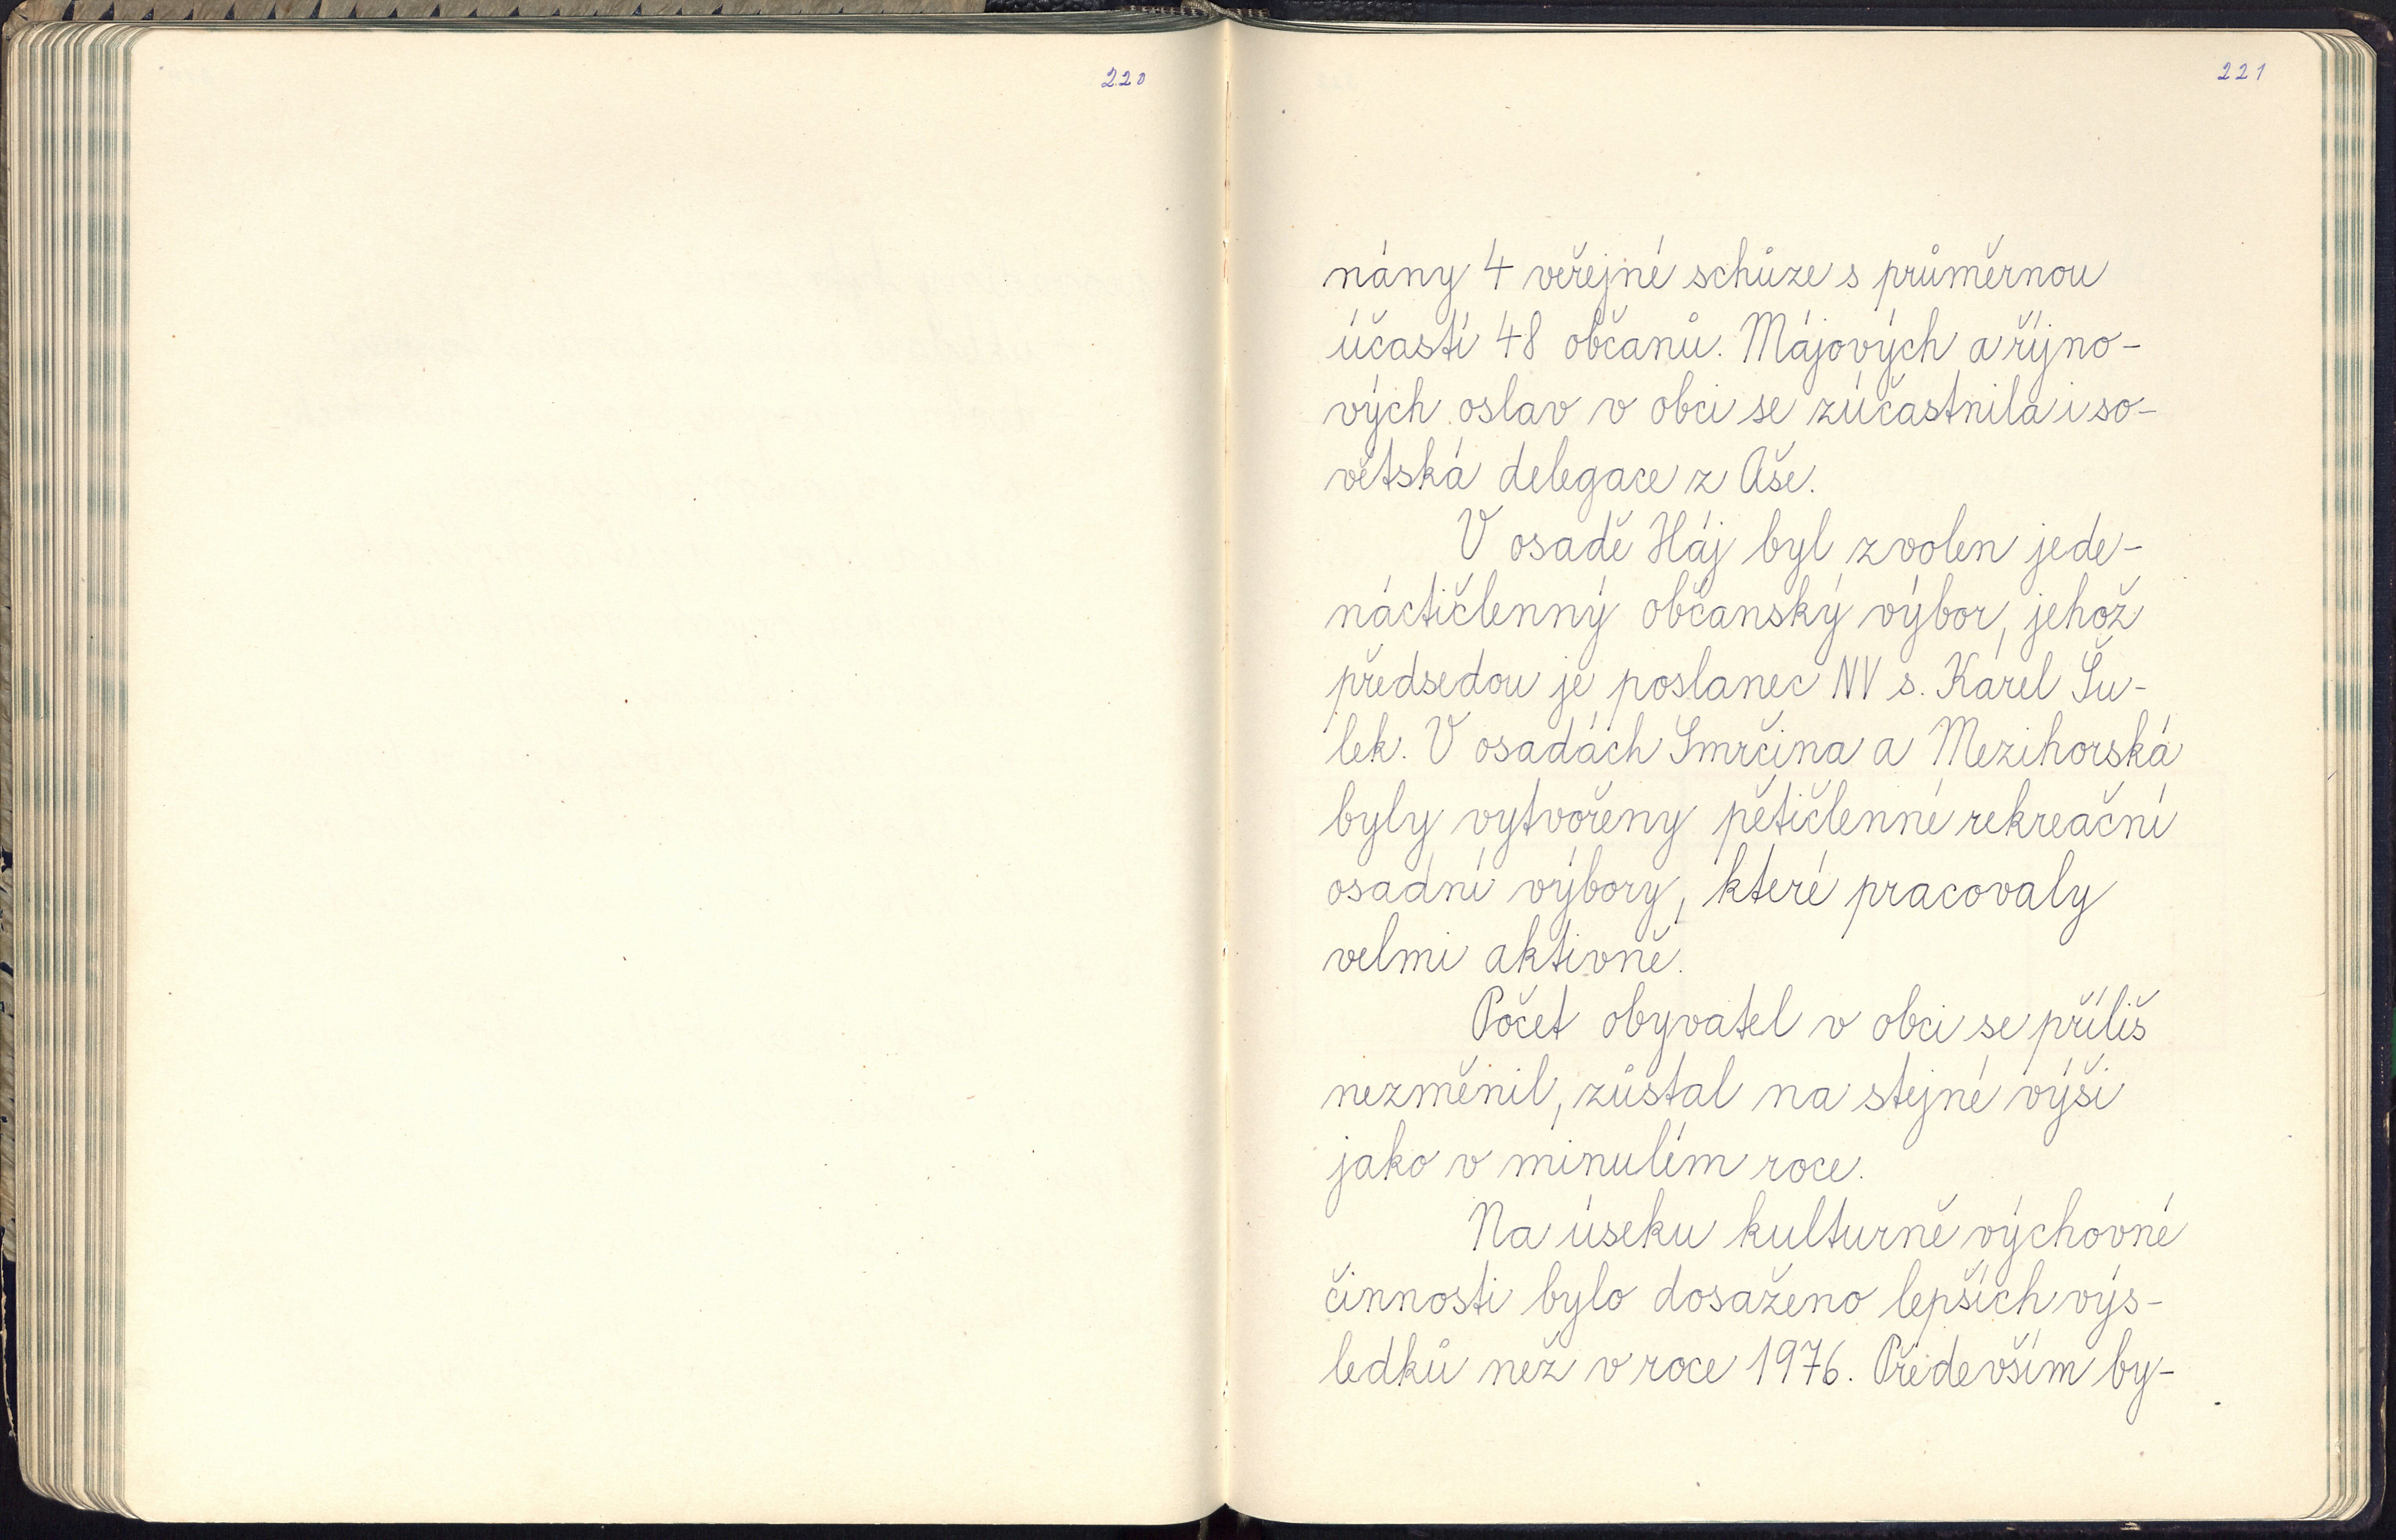 220
221
nány 4 veřejné schůze s průměrnou
účastí 48 občanů. Májových a říjno-
vých oslav v obci se zúčastnila i so-
větská delegace z Aše.
V osadě Háj byl zvolen jede-
náctičlenný občanský výbor, jehož
předsedou je poslanec NV s. Karel Šu-
lek. V osadách Smrčina a Mezihorská
byly vytvořeny pětičlenné rekreační
osadní výbory, které pracovaly
velmi aktivně.
Počet obyvatel v obci se příliš
nezměnil, zůstal na stejné výši
jako v minulém roce.
Na úseku kulturně výchovné
činnosti bylo dosaženo lepších výs-
ledků než v roce 1976. Především by-